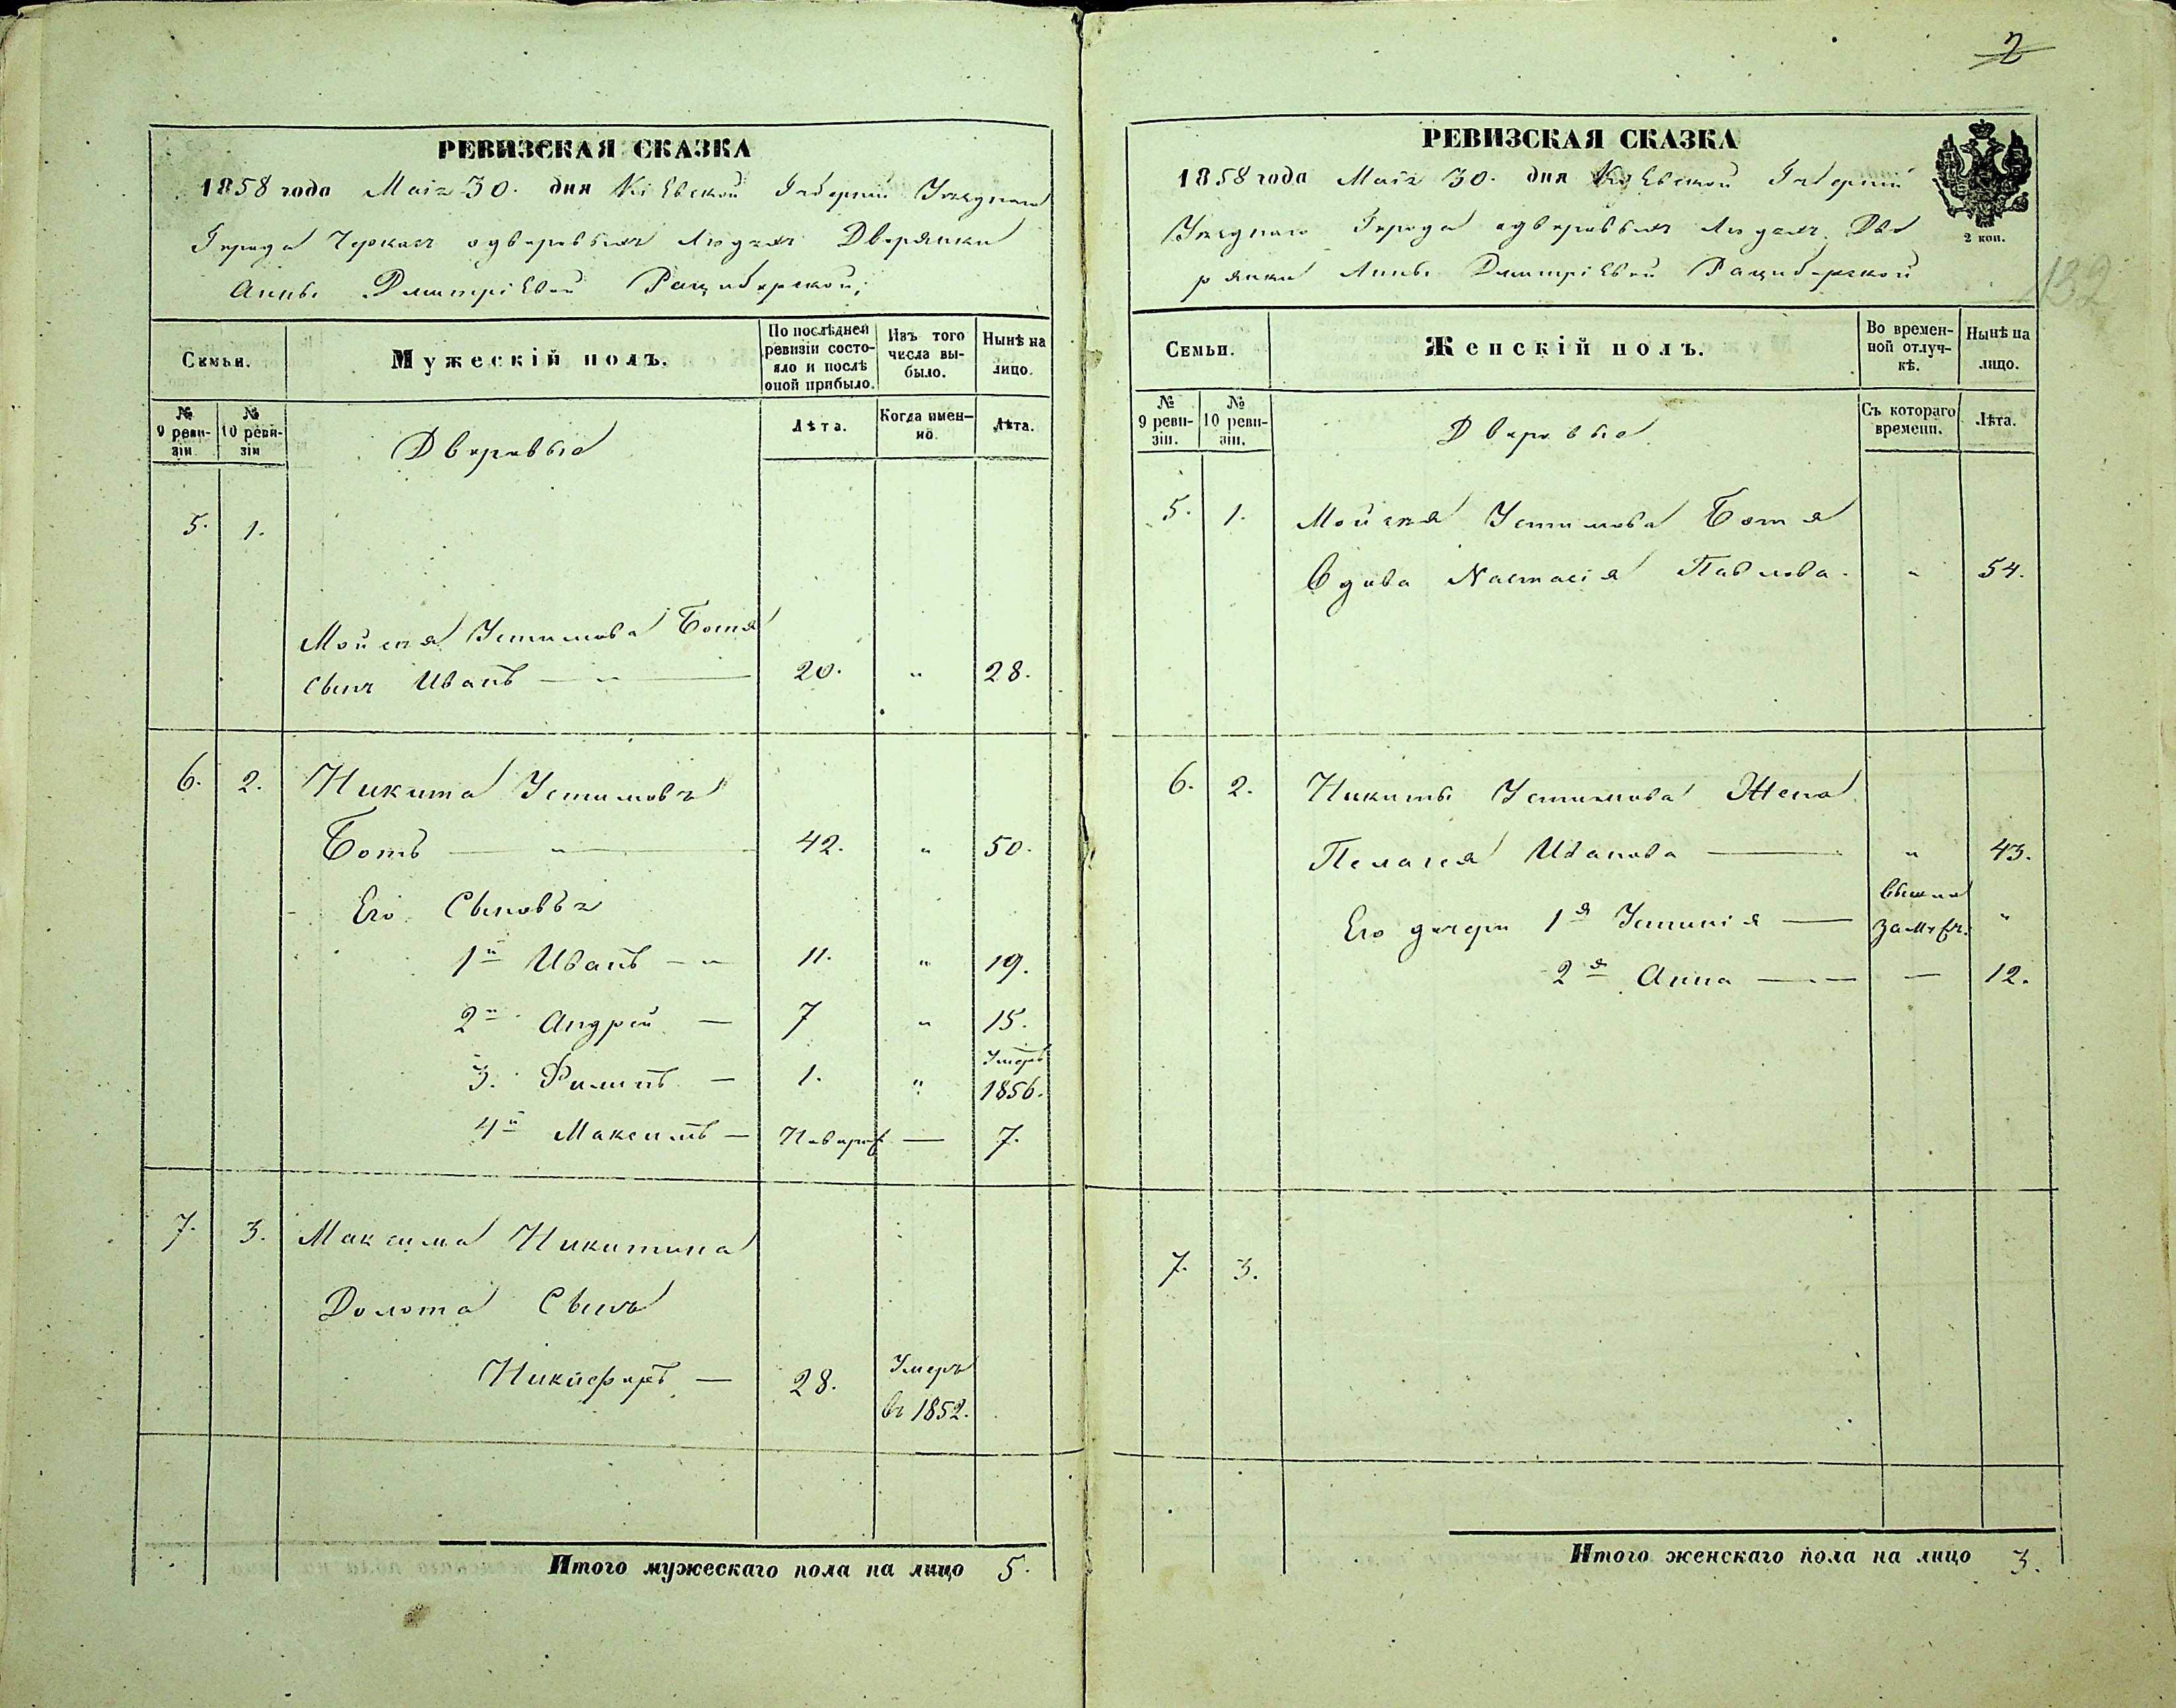 РЕВИЗСКАЯ СКАЗКА
1858 года Маія 30. дня Кіевской Губерніи Уезднаго
Города Черкасъ одворовыхъ Людяхъ Дворянки
Анны Дмитріевой Рациборской;
Семьи.
Мужескій полъ.
По послѣдней ревизіи состояло и послѣ оной прибыло.
Изъ того числа выбыло.
Нынѣ на лицо.
№ 9 ревизіи
№ 10 ревизіи
Дворовые
Лѣта.
Когда именно.
Лѣта.
5. 1.
Мойсея УстимоваБотя
сынъ Иванъ — " — 20. " 28.
6. 2. Никита Устимовъ
Боть — " — 42. " 50.
Его Сыновья
1й Иванъ — " 11. " 19.
2й Андрей — 7 " 15.
Умеръ
3. Филипъ — 1. " 1856.
4й Максимъ — Новорож — 7.
7. 3. Максима Никитина
Долота Сынъ
Никифоръ — 28. Умеръ
въ 1852.
Итого мужескаго пола на лицо 5.
2
РЕВИЗСКАЯ СКАЗКА
1858 года Маія 30. дня Кіевской Губерніи
Уезднаго Города одворовыхъ Людяхъ Дво
рянки Анны Дмитріевой Рациборской
2 коп.
132
Семьи.
Женскій полъ.
Во временной отлучкѣ.
Нынѣ на лицо.
№ 9 ревизіи.
№ 10 ревизіи.
Дворовые
Съ котораго времени.
Лѣта.
5. 1. Мойсея Устимова Ботя
Вдова Настасія Павлова. " 54.
6. 2. Никиты Устимова Жена
Пелагея Иванова — " 43.
Его дочери 1я Устинія — вышла замуж. "
2я Анна — — 12.
7. 3.
Итого женскаго пола на лицо 3.